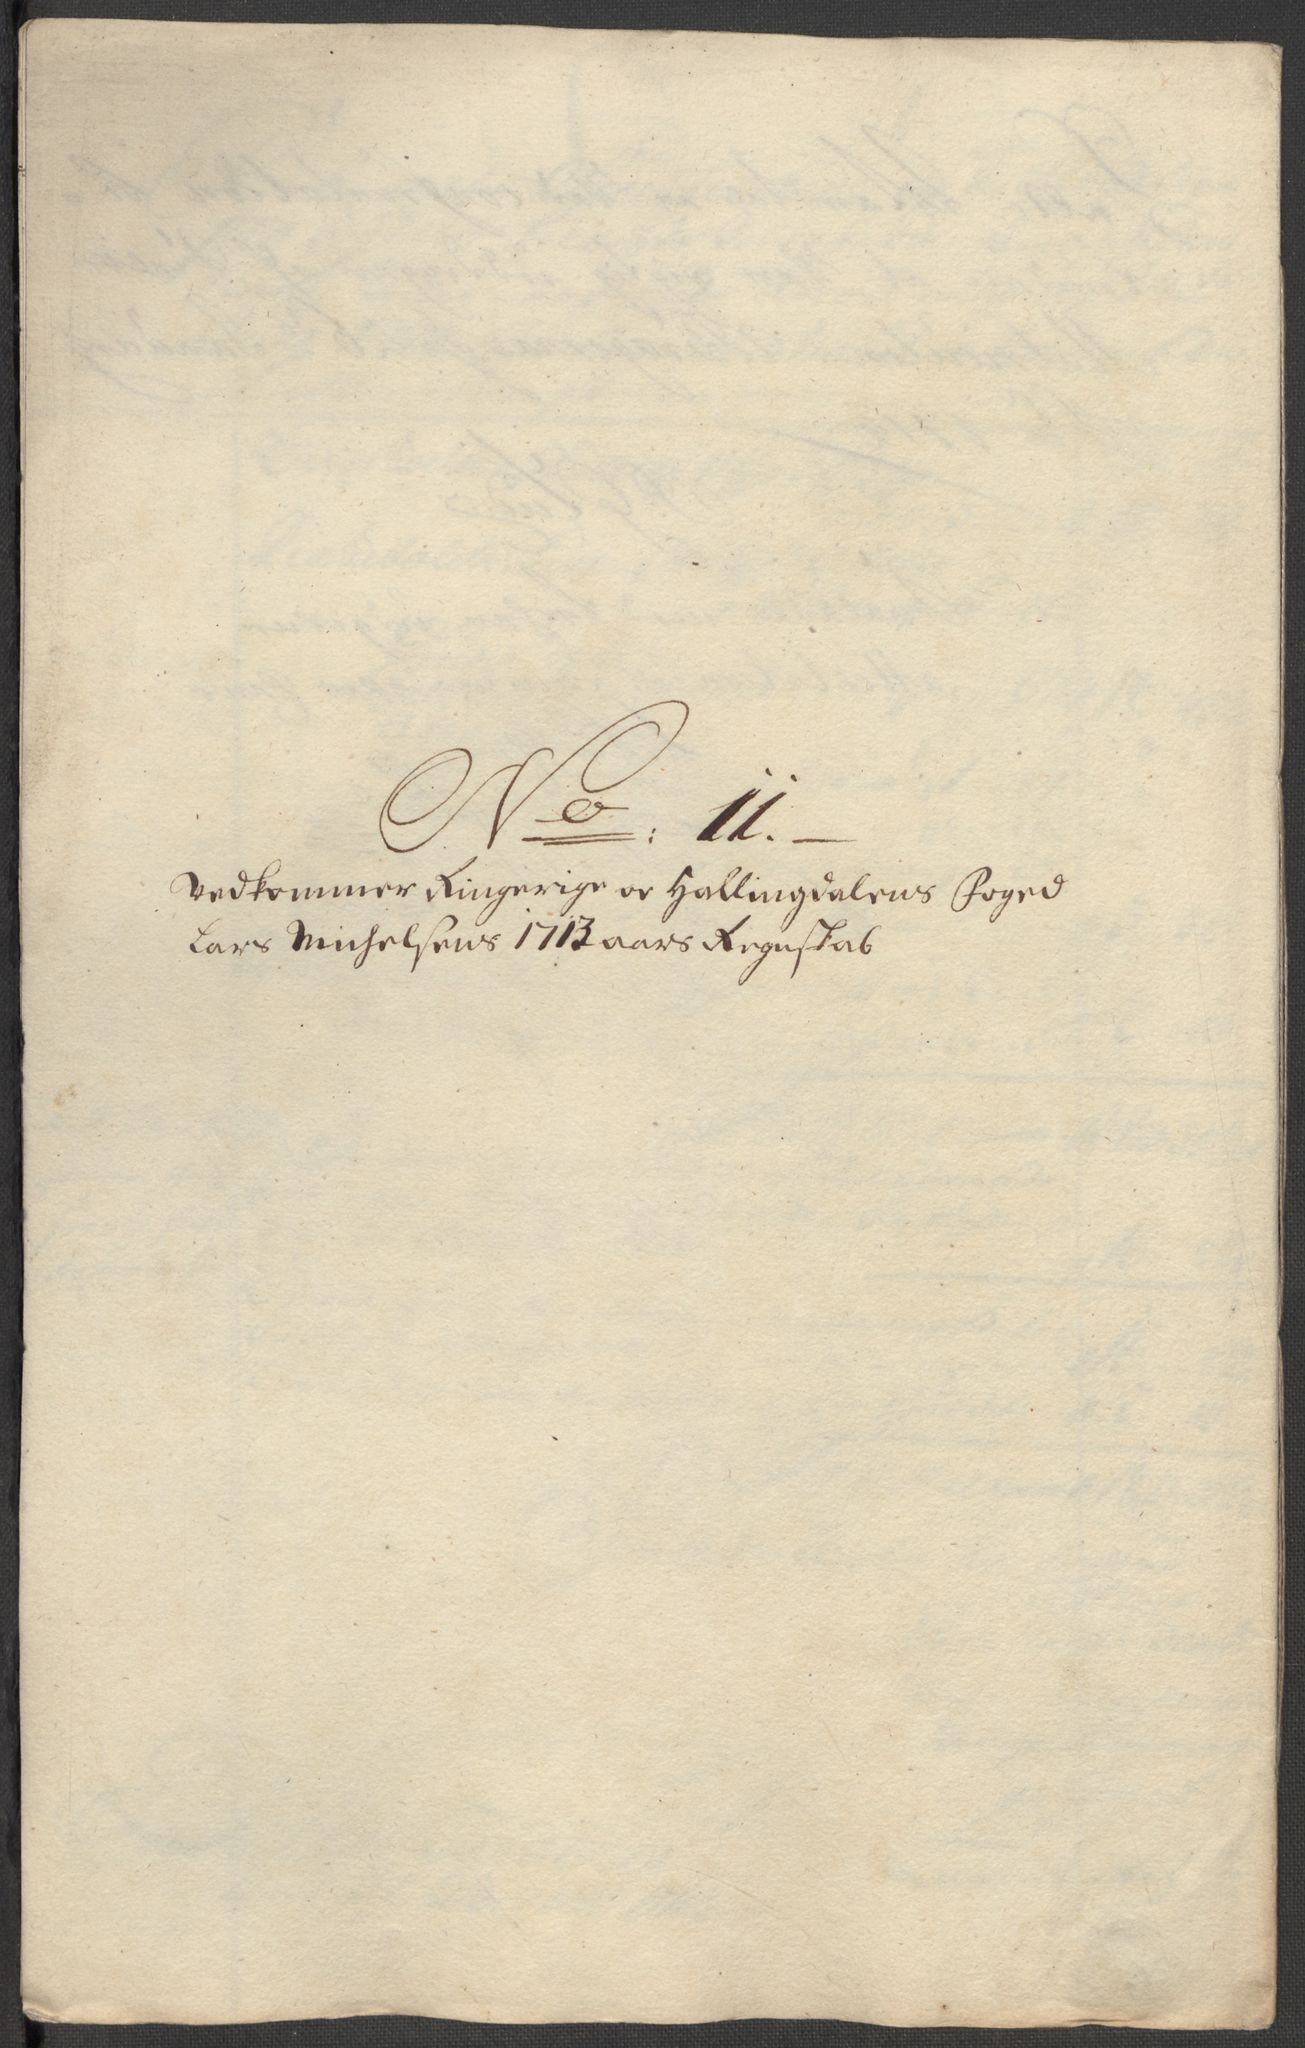 No: 11. —
Vedkommer Ringerige oc Hallingdalens Foged
Lars Michelsens 1713 aars Regnskab